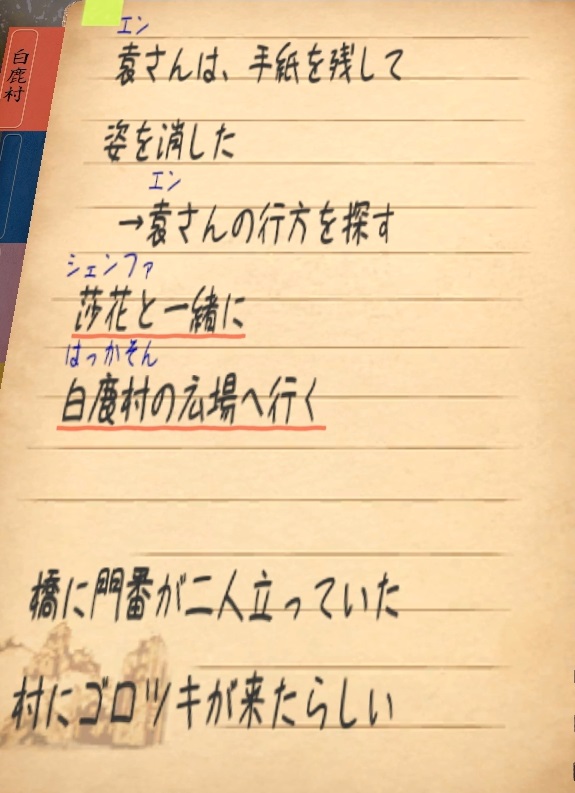 白鹿村
エン
袁さんは、手紙を残して
姿を消した
エン
→袁さんの行方を探す
シェンファ
莎花と一緒に
はっかそん
白鹿村の広場へ行く
橋に門番が二人立っていた
村にゴロツキが来たらしい